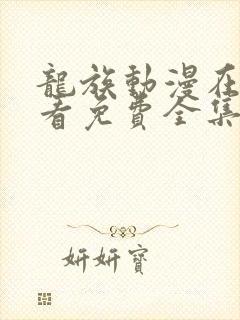 龍族動漫在
看免費全集
妍妍寶